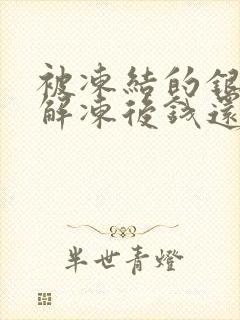 被凍結的銀
解凍後錢還
半世青燈